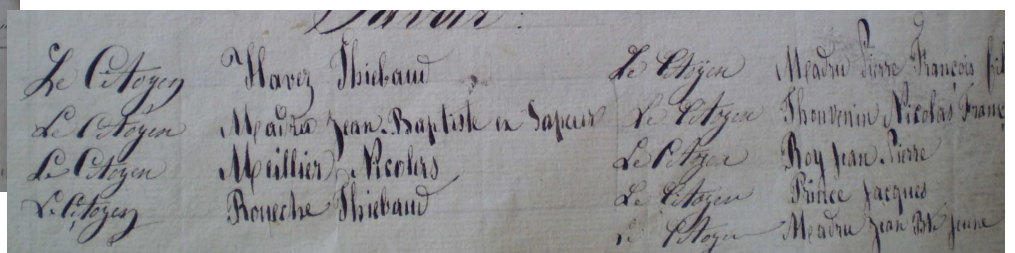 Savoir :
Le Citoyen Havez Thiebaud
Le Citoyen Meadru Jean-Baptiste ex Sapeur
Le Citoyen Meillier Nicolas
Le Citoyen Roueche Thiebaud
Le Citoyen Meadru Pierre François fil
Le Citoyen Thouvenin Nicolas Franç
Le Citoyen Roy Jean-Pierre
Le Citoyen Prince Jacques
Le Citoyen Meadru Jean Bte Jeune